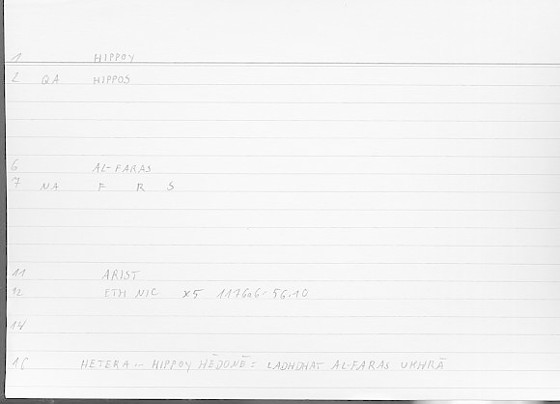 1 HIPPOY
2 QA HIPPOS
6 AL-FARAS
7 NA F R S
11 ARIST
12 ETH NIC X5 1176a6-5b.10
14
HETERA - HIPPOY HĒDONĒ: LADHDHAT AL-FARAS UKHRĀ